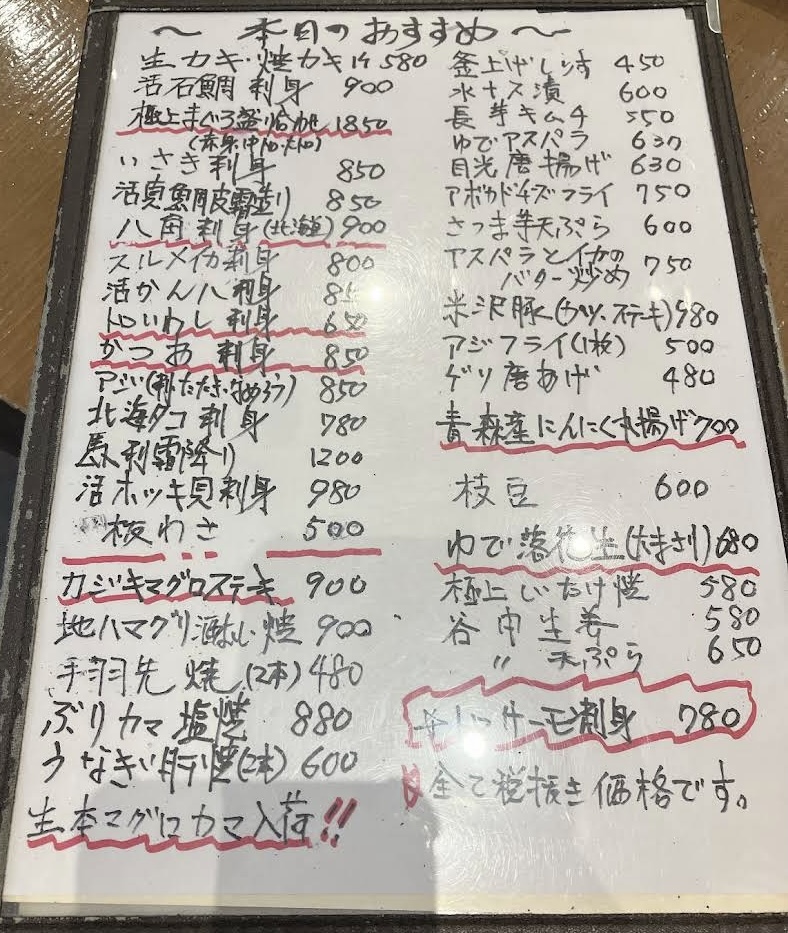 〜 本日のおすすめ 〜
生カキ・焼カキ 1ケ 580
活石鯛刺身 900
極上まぐろ盛り合わせ 1850
(赤身・中トロ・大トロ)
いさき刺身 850
活真鯛皮霜造り 850
八角刺身(北海道) 900
スルメイカ刺身 800
活かんパチ刺身 85
トロいわし刺身 650
かつお刺身 850
アジ(刺・たたき・なめろう) 850
北海タコ刺身 780
馬刺霜降り 1200
活ホッキ貝刺身 980
板わさ 500
カジキマグロステーキ 900
地ハマグリ酒蒸し・焼 900
手羽先焼(2本) 480
ぶりカマ塩焼 880
うなぎ肝焼(2本) 600
生本マグロカマ入荷!!
釜上げしらす 450
水ナス漬 600
長芋キムチ 550
ゆでアスパラ 630
目光唐揚げ 630
アボカドチーズフライ 750
さつま芋天ぷら 600
アスパラとイカの
バター炒め 750
米沢豚(カツ、ステーキ) 980
アジフライ(1枚) 500
ゲソ唐あげ 480
青森産にんにく丸揚げ 700
枝豆 600
ゆで落花生(大まさり) 680
極上しいたけ焼 580
谷中生姜 580
〃 天ぷら 650
サーモン刺身 780
全て税抜き価格です。